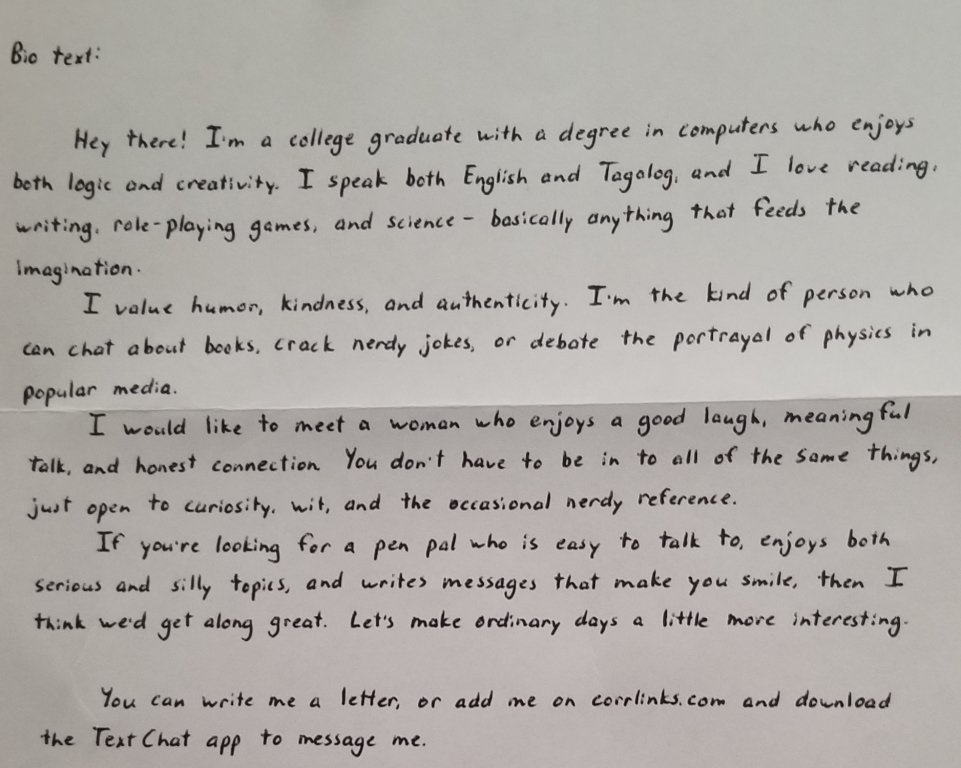 Bio text:
Hey there! I'm a college graduate with a degree in computers who enjoys
both logic and creativity. I speak both English and Tagalog, and I love reading,
writing, role-playing games, and science - basically anything that feeds the
imagination.
I value humor, kindness, and authenticity. I'm the kind of person who
can chat about books, crack nerdy jokes, or debate the portrayal of physics in
popular media.
I would like to meet a woman who enjoys a good laugh, meaningful
talk, and honest connection. You don't have to be in to all of the same things,
just open to curiosity, wit, and the occasional nerdy reference.
If you're looking for a pen pal who is easy to talk to, enjoys both
serious and silly topics, and writes messages that make you smile, then I
think we'd get along great. Let's make ordinary days a little more interesting.
You can write me a letter, or add me on corrlinks.com and download
the Text Chat app to message me.